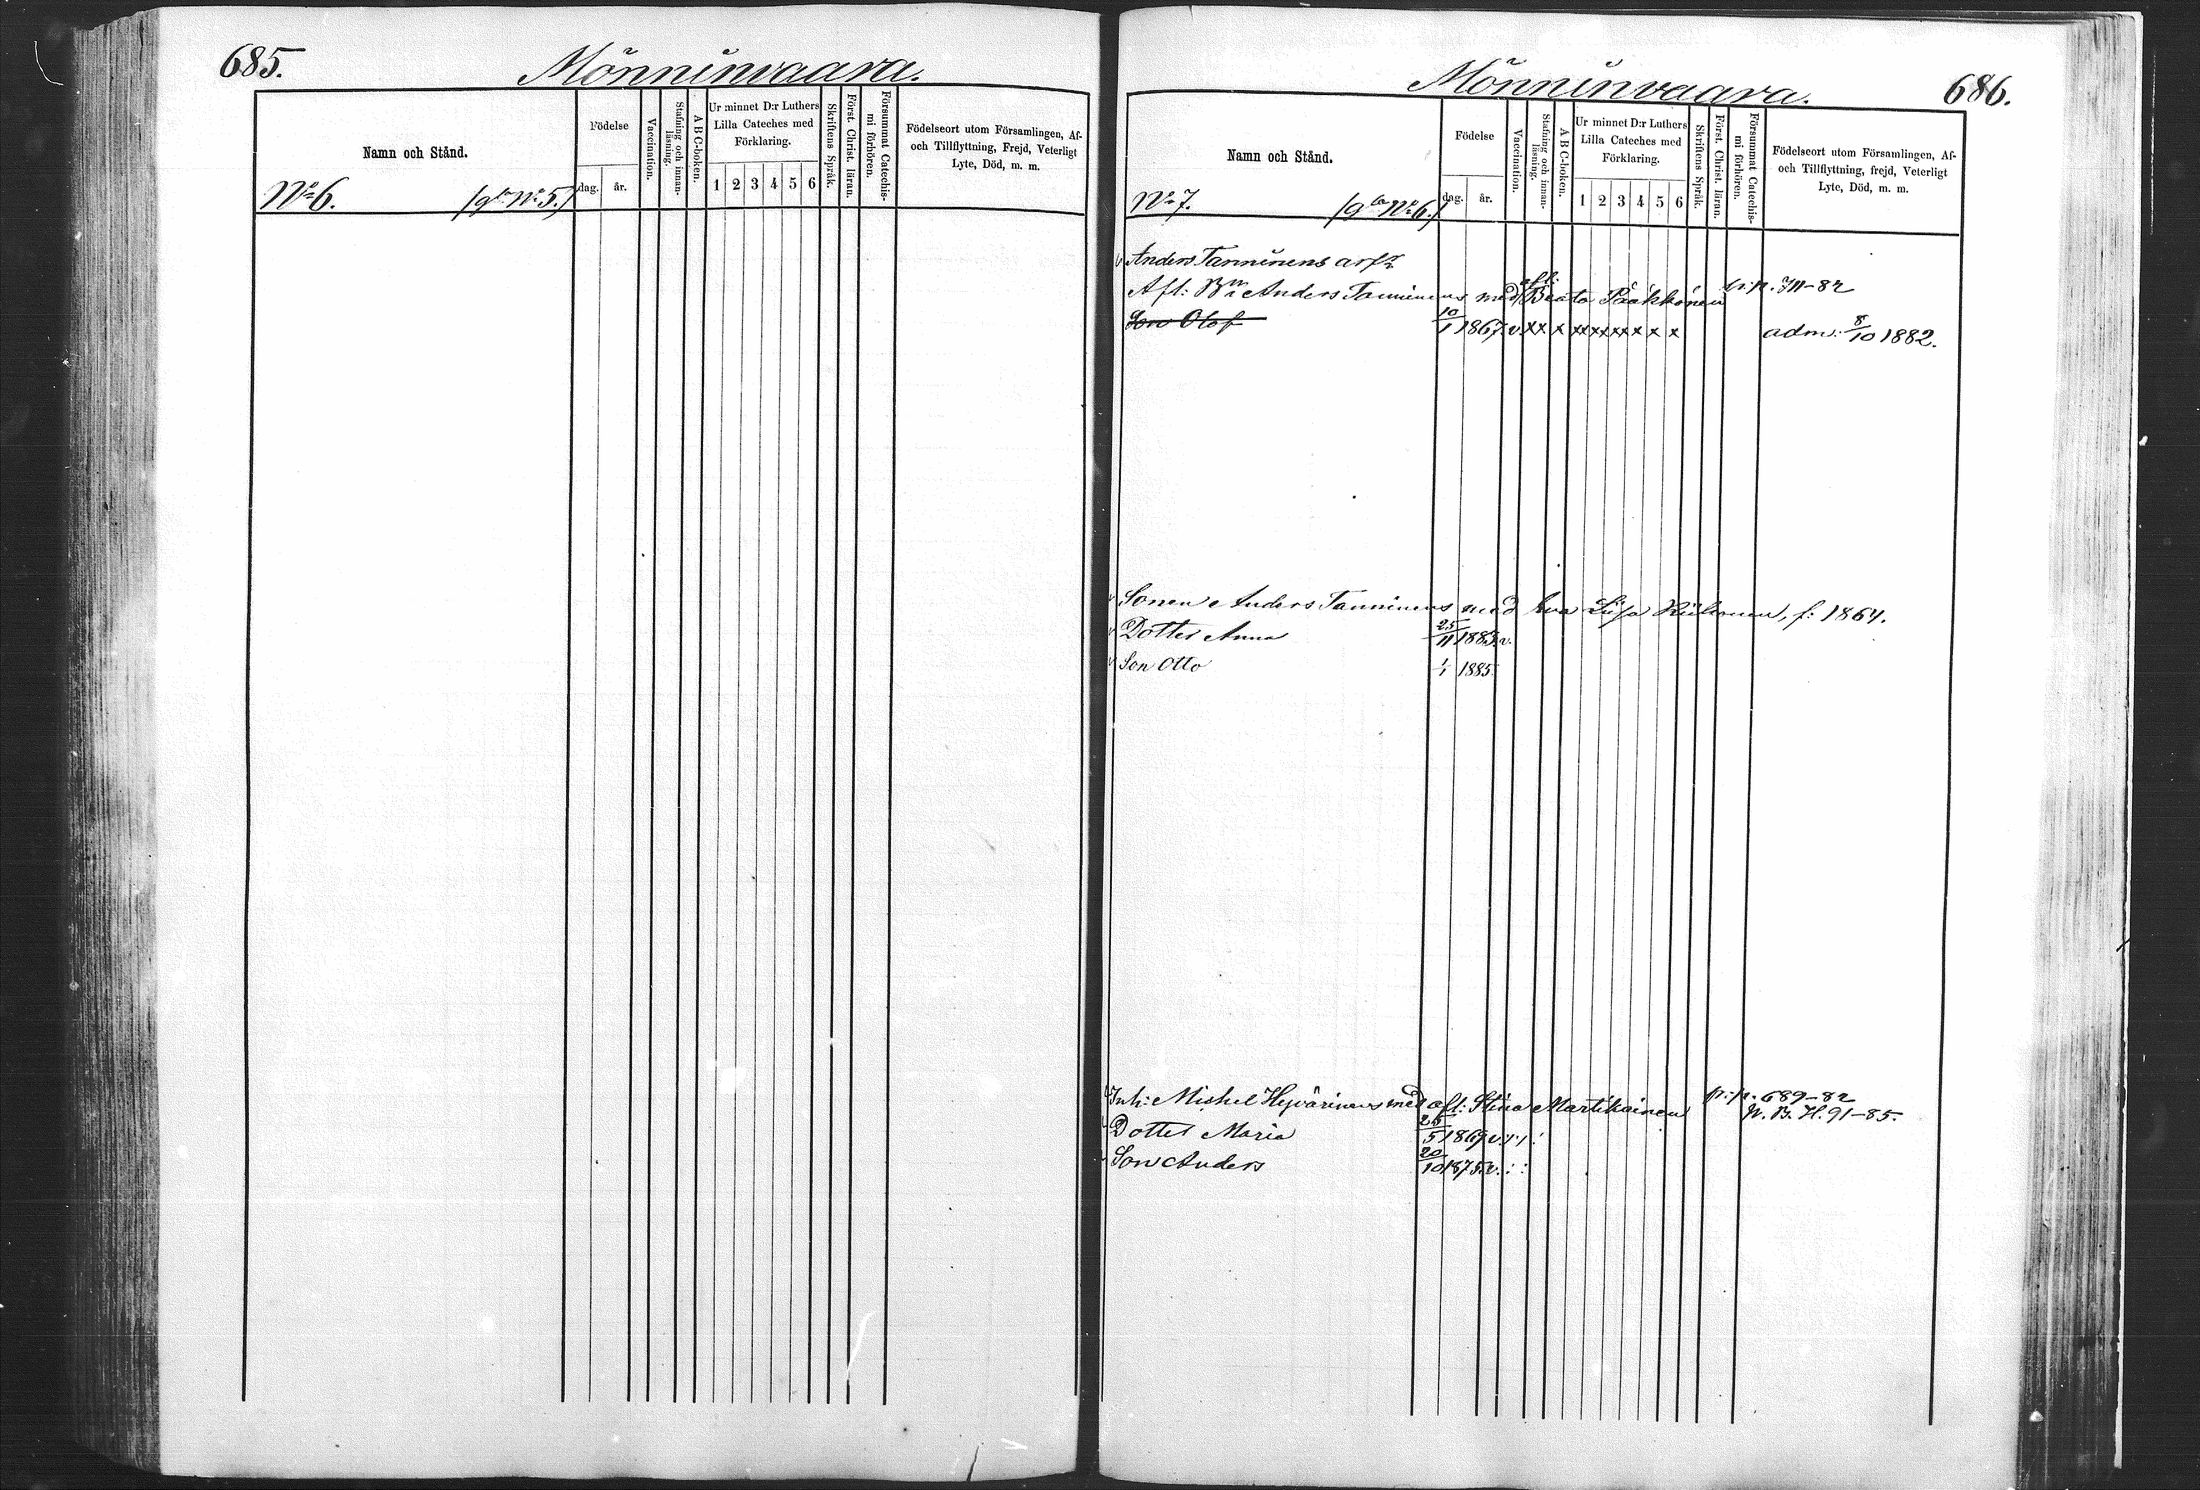 685.
Mönninvaara.
Namn och Stånd.
Födelse
dag. år.
Vaccination.
Stafning och innan-läsning.
A B C-boken.
Ur minnet D:r Luthers Lilla Cateches med Förklaring.
1 2 3 4 5 6
Skriftens Språk.
Först. Christ. läran.
Försummat Catechis-mi förhören.
Födelseort utom Församlingen, Af-
och Tillflyttning, Frejd, Veterligt
Lyte, Död, m. m.
No 6. /gla No 5./
Mönninvaara.
686.
Namn och Stånd.
Födelse
dag. år.
Vaccination.
Stafning och innan-läsning.
A B C-boken.
Ur minnet D:r Luthers Lilla Cateches med Förklaring.
1 2 3 4 5 6
Skriftens Språk.
Först. Christ. läran.
Försummat Catechis-mi förhören.
Födelseort utom Församlingen, Af-
och Tillflyttning, frejd, Veterligt
Lyte, Död, m. m.
No 7. /gla No 6./
Anders Tanninens arf
Afl: Bn Anders Tanninens med afl: Beata Pääkkönen -82
Son Olof 10/1 1867 v. xx x xx xx xx x x x adm: 8/10 1882.
Sonen Anders Tanninens med Eva Lisa f: 1864.
Dotter Anna 25/11 1883 v.
Son Otto 1/1 1885
Inh: Michel Hyvärinens med afl: Stina Martikainen p: 689-82
N. B. H. 91-85.
Dotter Maria 25/5 1869 v.
Son Anders 20/10 1875 v. : :